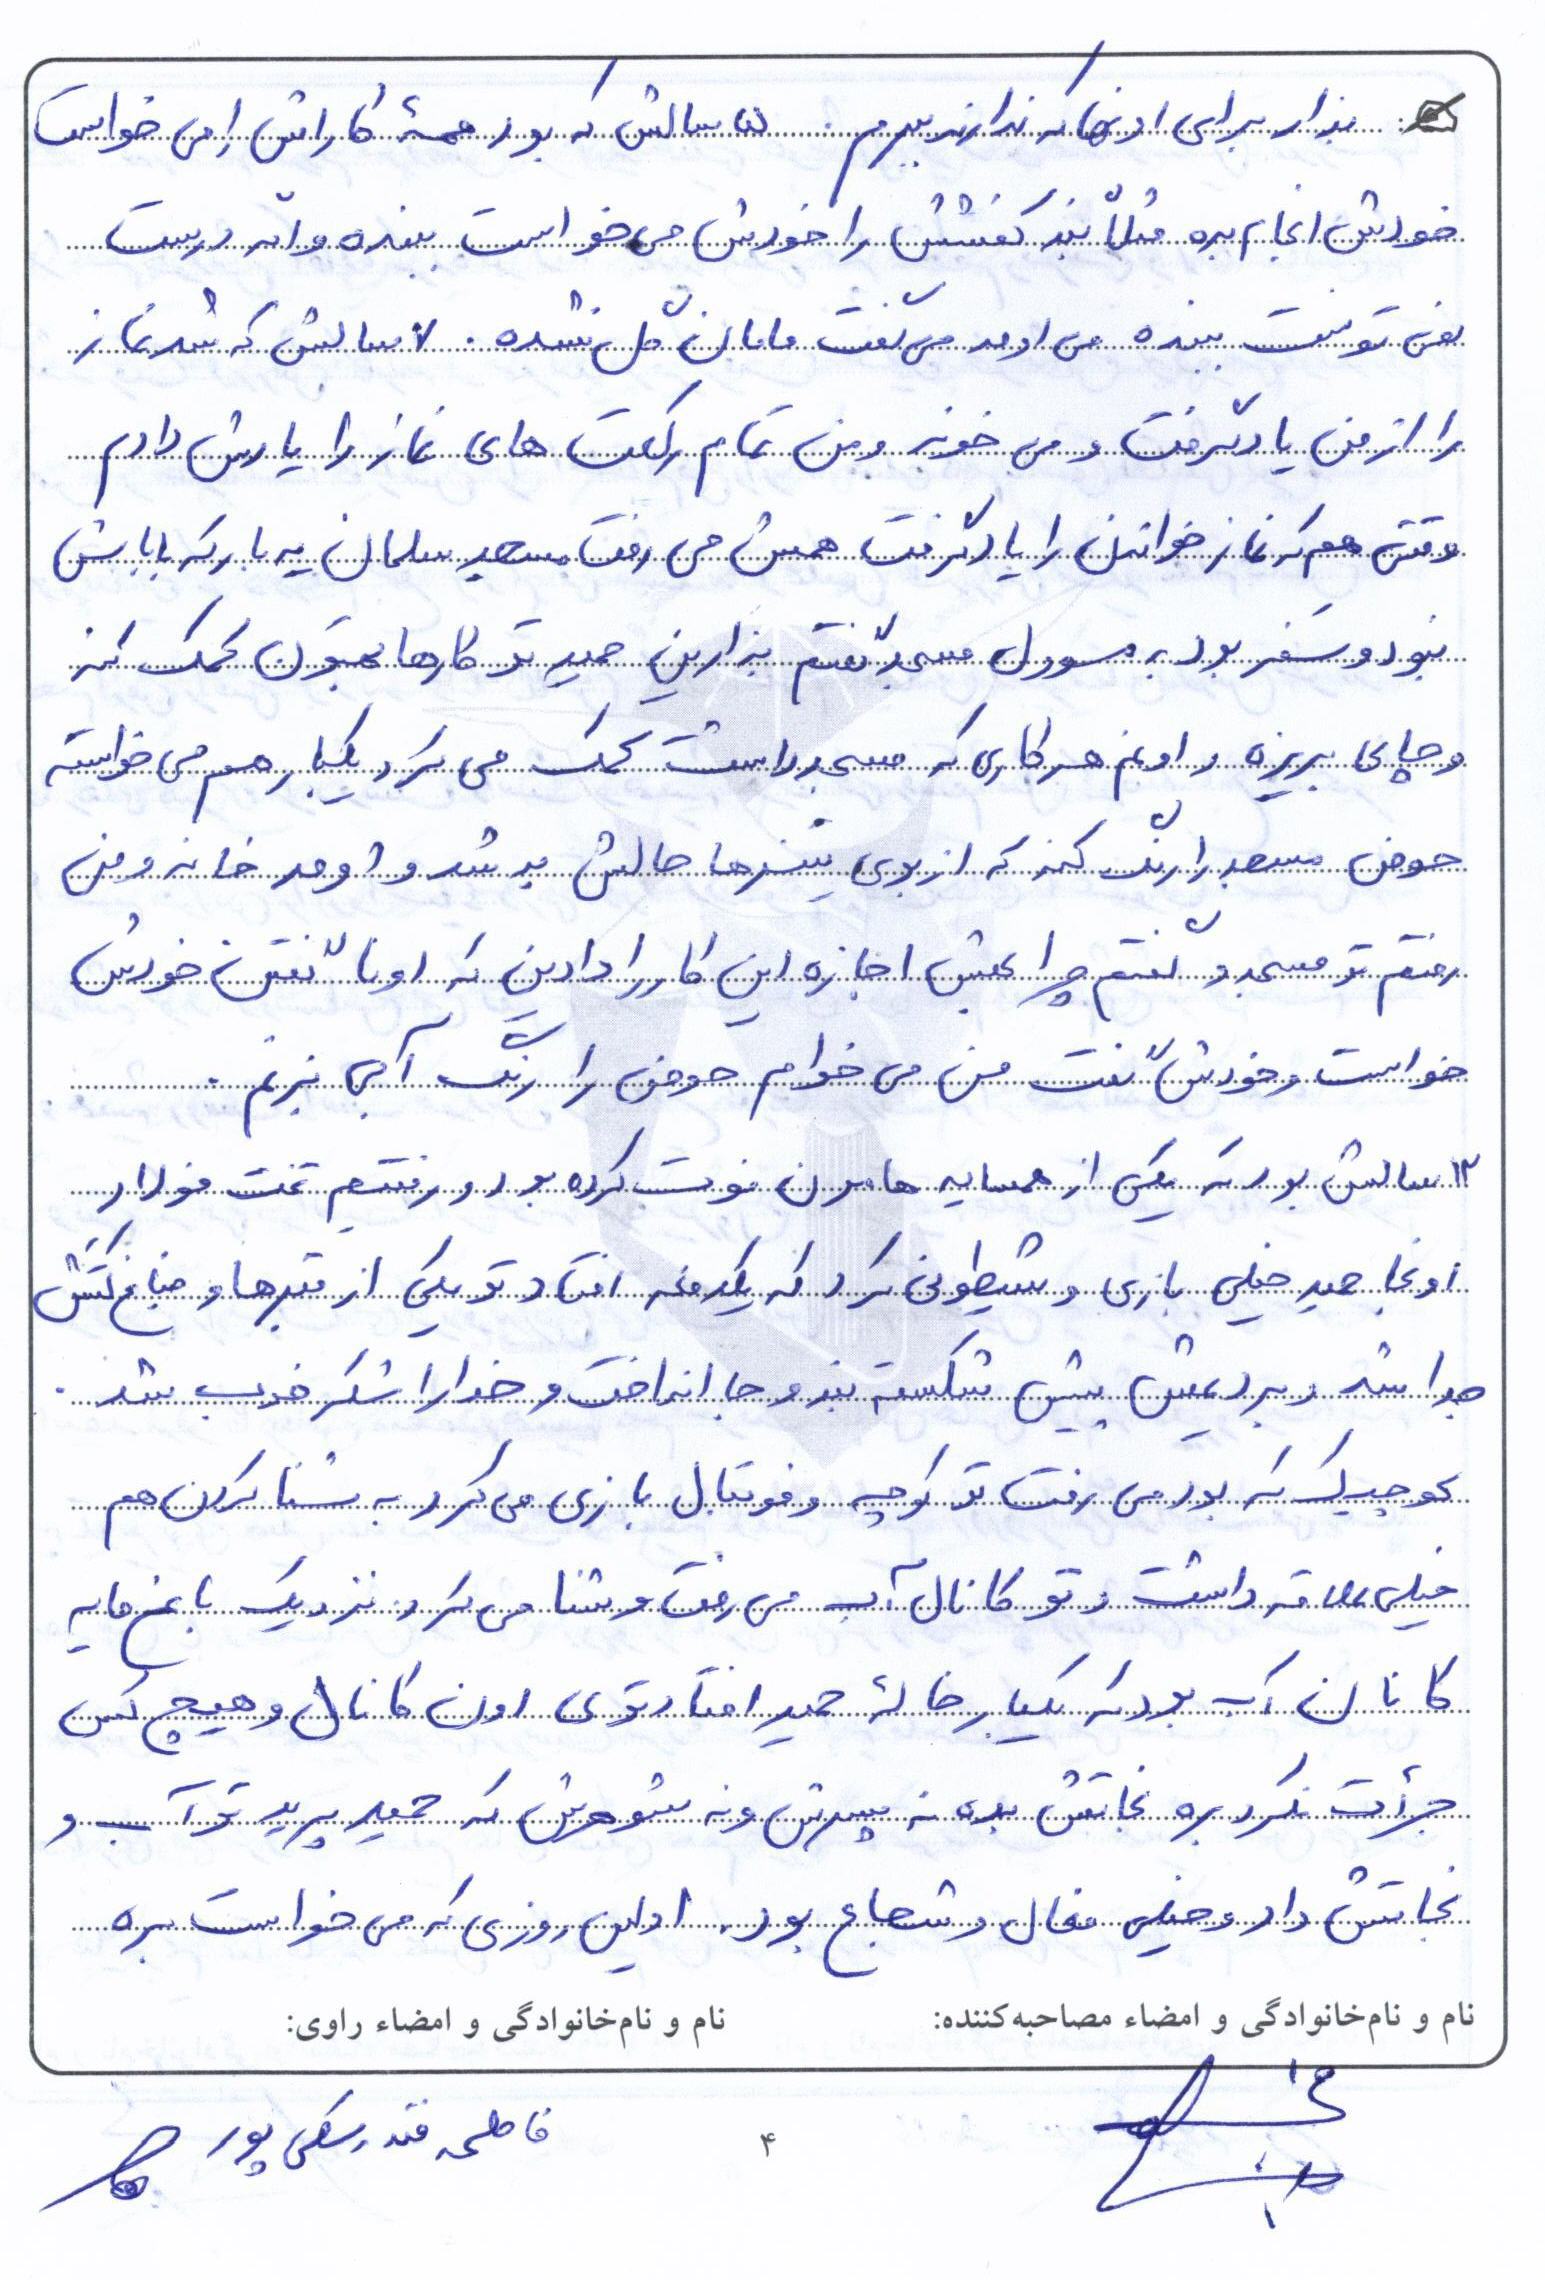 بذار برای اونها که ندارند ببرم. ۵ سالش که بود همهٔ کاراش را می خواست
خودش انجام بده مثلاً بند کفشش را خودش می خواست ببنده و اگر درست
نمی تونست ببنده می اومد می گفت مامان گل نشده. ۷ سالش که شد نماز
را از من یاد گرفت و می خوند و من تمام رکعت های نماز را یادش دادم
وقتی هم که نماز خواندن را یاد گرفت همش می رفت مسجد سلمان یه بار که باباش
نبود و سفر بود به مسوول مسجد گفتم بذارین حمید تو کارها بهتون کمک کنه
و چایی بریزه و اونم هر کاری که مسجد داشت کمک می کرد یکبار هم می خواسته
حوض مسجد را رنگ کنه که از بوی تینرها حالش بد شد و اومد خانه و من
رفتم تو مسجد و گفتم چرا بهش اجازه این کار را دادین که اونا گفتن خودش
خواست و خودش گفت من می خوام حوض را رنگ آبی بزنم.
۱۲ سالش بود که یکی از همسایه هامون فوت کرده بود و رفتیم تخت فولاد
اونجا حمید خیلی بازی و شیطونی کرد که یکدفعه افتاد تو یکی از قبرها و جناغ کتفش
جدا شد و بردیمش پیش شکسته بند و جا انداخت و خدا را شکر خوب شد.
کوچیک که بود می رفت تو کوچه و فوتبال بازی می کرد به شنا کردن هم
خیلی علاقه داشت و تو کانال آب می رفت و شنا می کرد نزدیک باغ ما یه
کانال آب بود که یکبار خالهٔ حمید افتاد توی اون کانال و هیچ کس
جرأت نکرد بره نجاتش بده نه پسرش و نه شوهرش که حمید پرید تو آب و
نجاتش داد و خیلی فعال و شجاع بود. اولین روزی که می خواست بره
نام و نام‌خانوادگی و امضاء مصاحبه‌کننده:
نام و نام‌خانوادگی و امضاء راوی:
فاطمه فندرسکی پور
۴